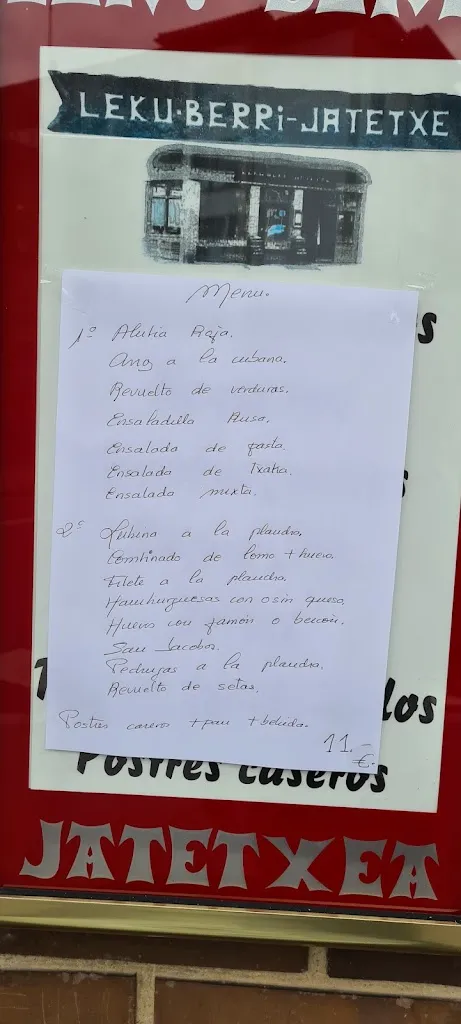 LEKU·BERRI-JATETXE
Menu.
1º Alubia Roja.
Arroz a la cubana.
Revuelto de verduras.
Ensaladilla Rusa.
Ensalada de pasta.
Ensalada de Txaka.
Ensalada mixta.
2º Lubina a la plancha.
Combinado de lomo + huevo.
Filete a la plancha.
Hamburguesas con o sin queso.
Huevos con jamón o beicon.
San Jacobos.
Pechugas a la plancha.
Revuelto de setas.
Postres caseros + pan + bebida.
11.-
€.
Postres caseros
JATETXEA